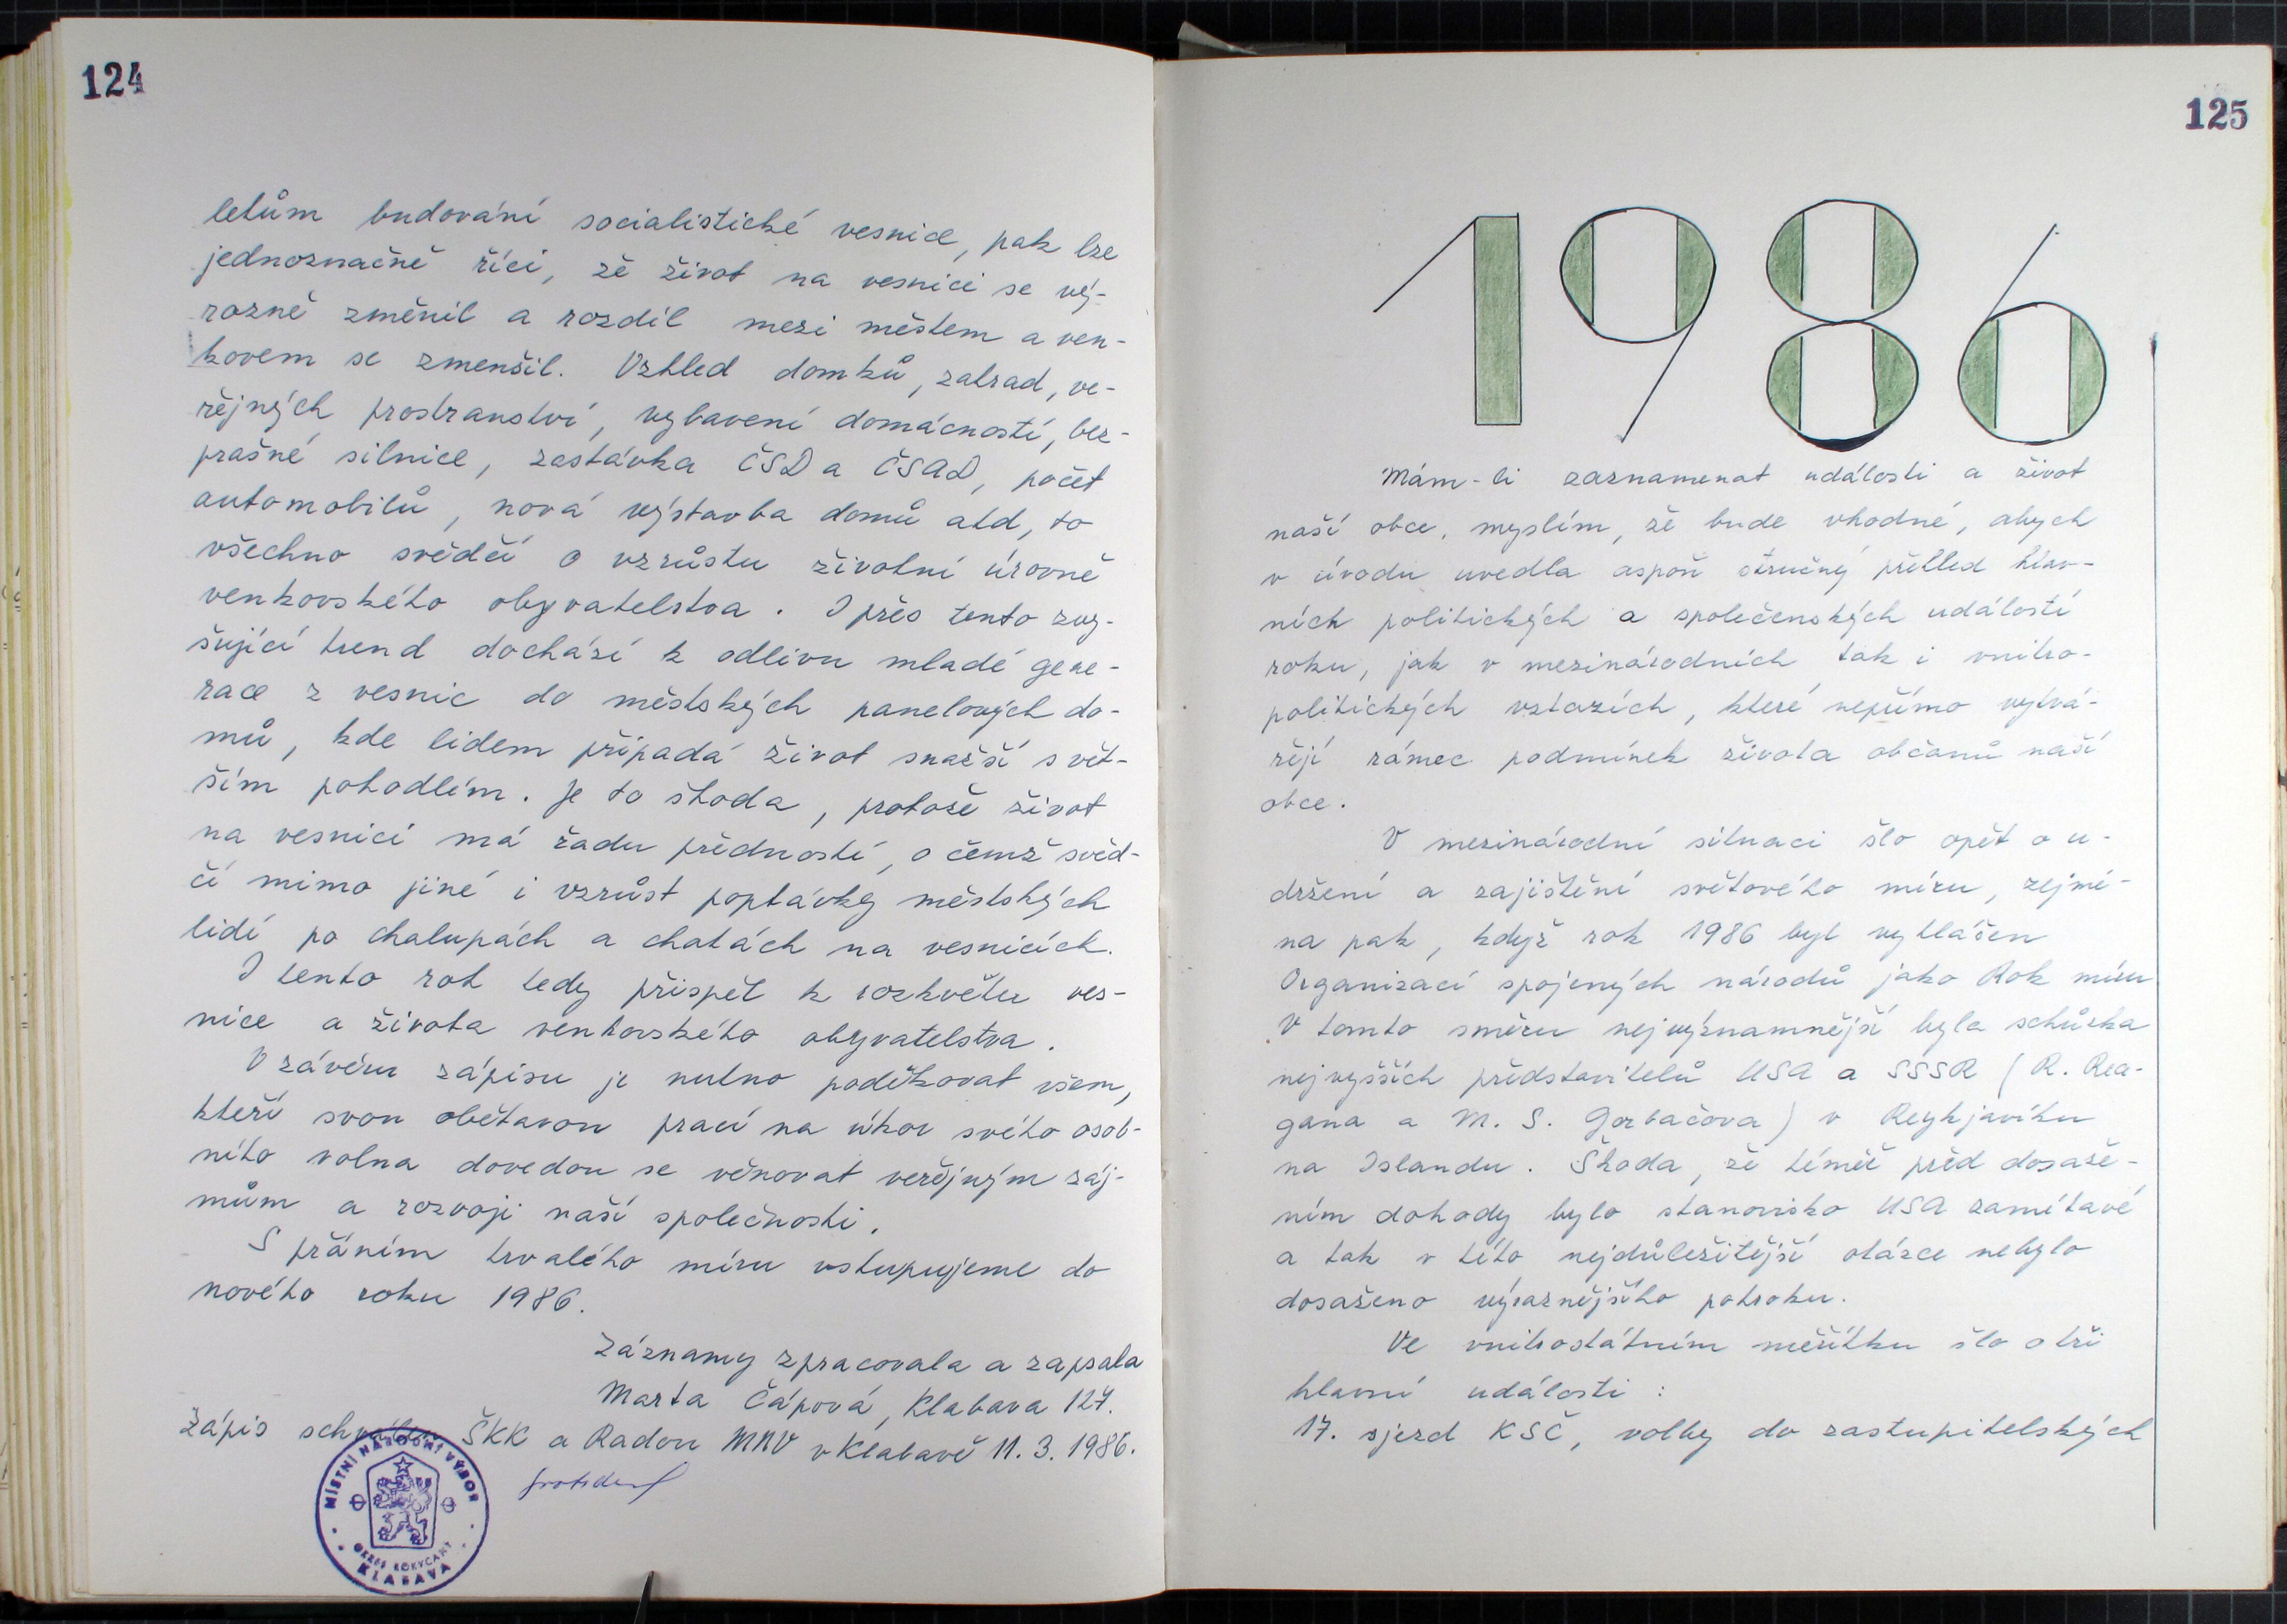 124
letům budování socialistické vesnice, pak lze
jednoznačně říci, že život na vesnici se vý-
razně změnil a rozdíl mezi městem a ven-
kovem se zmenšil. Vzhled domků, zahrad, ve-
řejných prostranství, vybavení domácností, bez-
prašné silnice, zastávka ČSD a ČSAD, počet
automobilů, nová výstavba domů atd, to
všechno svědčí o vzrůstu životní úrovně
venkovského obyvatelstva. I přes tento zvy-
šující trend dochází k odlivu mladé gene-
race z vesnic do městských panelových do-
mů, kde lidem připadá život snažší s vět-
ším pohodlím. Je to škoda, protože život
na vesnici má řadu předností, o čemž svěd-
čí mimo jiné i vzrůst poptávky městských
lidí po chalupách a chatách na vesnicích.
I tento rok tedy přispěl k rozkvětu ves-
nice a života venkovského obyvatelstva.
V závěru zápisu je nutno poděkovat všem,
kteří svou obětavou prací na úkor svého osob-
ního volna dovedou se věnovat veřejným záj-
mům a rozvoji naší společnosti.
S přáním trvalého míru vstupujeme do
nového roku 1986.
Záznamy zpracovala a zapsala
Marta Čápová, Klabava 127.
Zápis schválen ŠKK a Radou MNV v Klabavě 11. 3. 1986.
MÍSTNÍ NÁRODNÍ VÝBOR
OKRES ROKYCANY
KLABAVA
125
1986
Mám-li zaznamenat události a život
naší obce, myslím, že bude vhodné, abych
v úvodu uvedla aspoň stručný přehled hlav-
ních politických a společenských událostí
roku, jak v mezinárodních tak i vnitro-
politických vztazích, které nepřímo vytvá-
řejí rámec podmínek života občanů naší
obce.
V mezinárodní situaci šlo opět o u-
držení a zajištění světového míru, zejmé-
na pak, když rok 1986 byl vyhlášen
Organizací spojených národů jako Rok míru
V tomto směru nejvýznamnější byla schůzka
nejvyšších představitelů USA a SSSR (R. Rea-
gana a M. S. Gorbačova) v Reykjavíku
na Islandu. Škoda, že téměř před dosaže-
ním dohody bylo stanovisko USA zamítavé
a tak v této nejdůležitější otázce nebylo
dosaženo výraznějšího pokroku.
Ve vnitrostátním měřítku šlo o tři
hlavní události:
17. sjezd KSČ, volby do zastupitelských